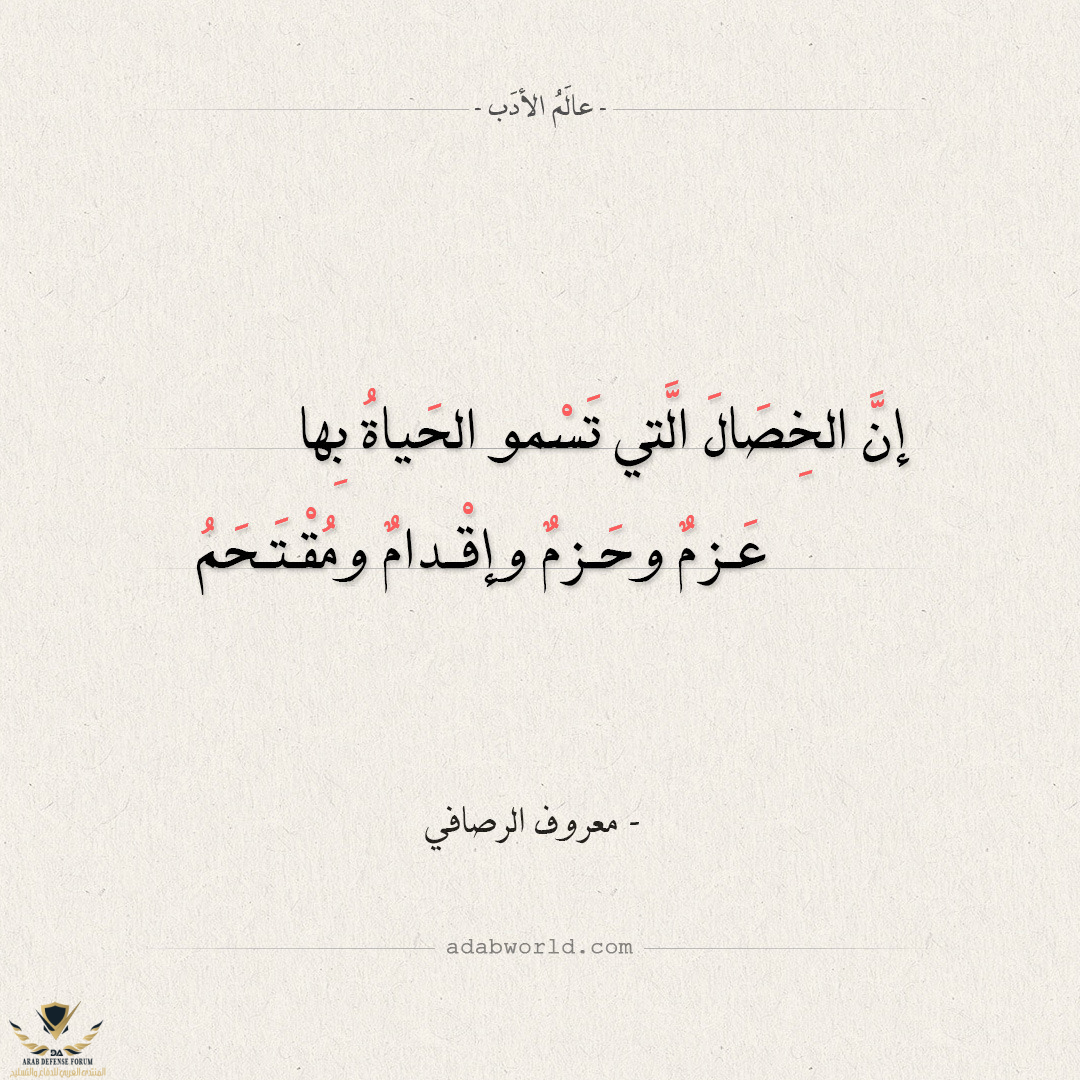 - عالَمُ الأدَب -
إنَّ الخِصَالَ الَّتي تَسْمو الحَياةُ بِها
عَـزمٌ وحَـزمٌ وإقْـدامٌ ومُقْـتَـحَمُ
- معروف الرصافي
adabworld.com
DA
ARAB DEFENSE FORUM
المنتدى العربي للدفاع والتسليح